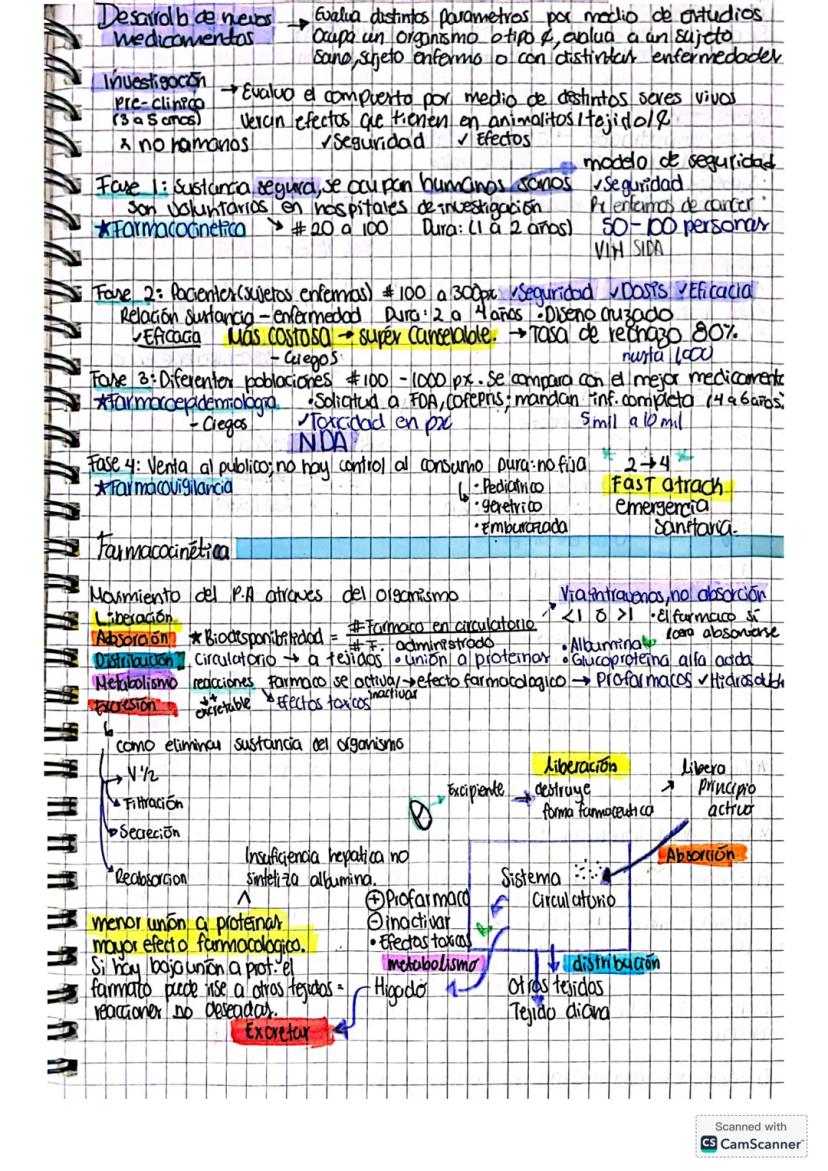 Desarrollo de nuevos medicamentos → Evalua distintos parametros por medio de estudios
Ocupa un organismo o tipo ¢, evalua a un sujeto
sano, sujeto enfermo o con distintas enfermedades
Investigación
Pre-clínico
(3 a 5 años)
x no humanos
→ Evalua el compuesto por medio de distintos seres vivos
vercin efectos que tienen en animalitos/tejido/¢
✓Seguridad ✓ Efectos
modelo de seguridad
Fase 1: Sustancia segura, se ocupan humanos sanos ✓Seguridad
son voluntarios en hospitales de investigación
Px enfermos de cancer
★Farmacocinética ↘ #20 a 100 Dura: (1 a 2 años) 50-100 personas
VIH SIDA
Fase 2: Pacientes (sujetos enfermos) # 100 a 300px ✓Seguridad ✓Dosis ✓Eficacia
Relación sustancia - enfermedad Dura: 2 a 4 años • Diseño cruzado
✓Eficacia Más costosa → super cancelable. → Tasa de rechazo 80%
- Ciegos
hasta 1,000
Fase 3: Diferentes poblaciones #100 - 1000 px. Se compara con el mejor medicamento
★Farmacoepidemiologia •Solicitud a FDA, cofepris; mandan inf. completa (4 a 6 años)
- Ciegos ✓Toxicidad en px 5 mil a 10 mil
NDA
Fase 4: Venta al publico; no hay control al consumo Dura: no fija * 2→4 *
★Farmacovigilancia
• Pediatrico
• geretrico
• Embarazada
FAST atrach
emergencia
sanitaria.
Farmacocinética
Movimiento del P.A atraves del organismo
Via intravenos, no absorción
Liberación
<1 o >1 • El farmaco si
absorverse
Absorción ★ Biodisponibilidad = # Farmaco en circulatorio
# F. administrado
• Albumina
Distribución Circulatorio → a tejidos • unión a proteinas • Glucoproteína alfa acida
Metabolismo reacciones Farmaco se activa/ → efecto farmacologico → Profarmacos ✓
inactivar
Excresión excretable ↘ Efectos toxicos
como eliminar sustancia del organismo
→ V 1/2
Filtración
Secreción
Reabsorcion
Excipiente → destruye
forma farmaceutica
Liberación
↗ libera
principio
activo
Absorción
Sistema
Circulatorio
Insuficiencia hepatica no
sintetiza albumina.
^
menor unión a proteínas
mayor efecto farmacologico.
Si hay baja unión a prot. el
farmato puede irse a otros tejidos =
reacciones no deseadas.
⊕ Profarmaco
⊖ inactivar
• Efectos toxicos
metabolismo
Higado
Excretar
distribución
Otros tejidos
Tejido diana
Scanned with
CS CamScanner